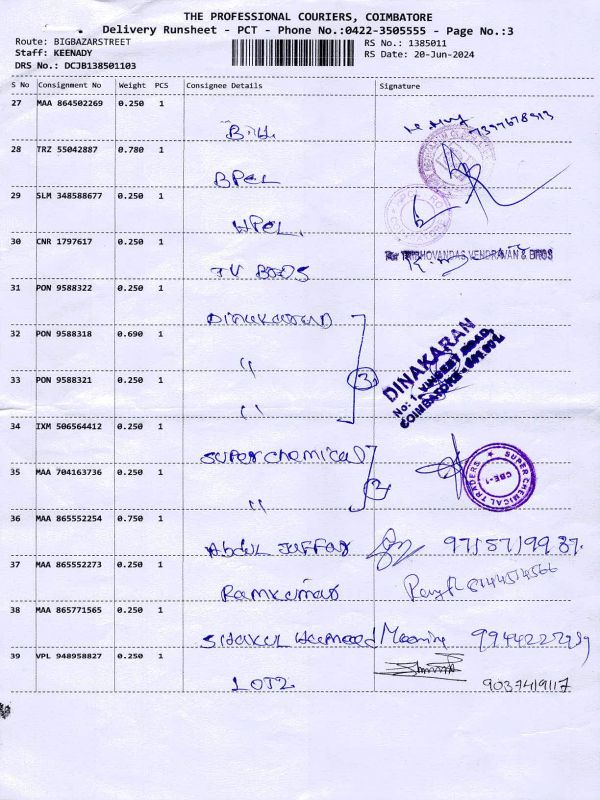 THE PROFESSIONAL COURIERS, COIMBATORE
Delivery Runsheet - PCT - Phone No.:0422-3505555 - Page No.:3
Route: BIGBAZARSTREET
Staff: KEENADY
DRS No.: DCJB138501103
RS No.: 1385011
RS Date: 20-Jun-2024
S No Consignment No Weight PCS Consignee Details Signature
27 MAA 864502269 0.250 1
28 TRZ 55042887 0.780 1
BPCL
29 SLM 348588677 0.250 1
HPCL.
30 CNR 1797617 0.250 1
For TRIBHOVANDAS VENDRAVAN & BROS
TV BROS
31 PON 9588322 0.250 1
DINAKARAN
32 PON 9588318 0.690 1
"
33 PON 9588321 0.250 1
"
3
DINAKARAN
No: 1, VINCENT ROAD,
COIMBATORE - 641 001.
34 IXM 506564412 0.250 1
Super chemical
35 MAA 704163736 0.250 1
"
2
SUPER CHEMICAL TRADERS
CBE-1
36 MAA 865552254 0.750 1
Abdul Jaffar
37 MAA 865552273 0.250 1
Ramkumar
38 MAA 865771565 0.250 1
39 VPL 948958827 0.250 1
9037419117